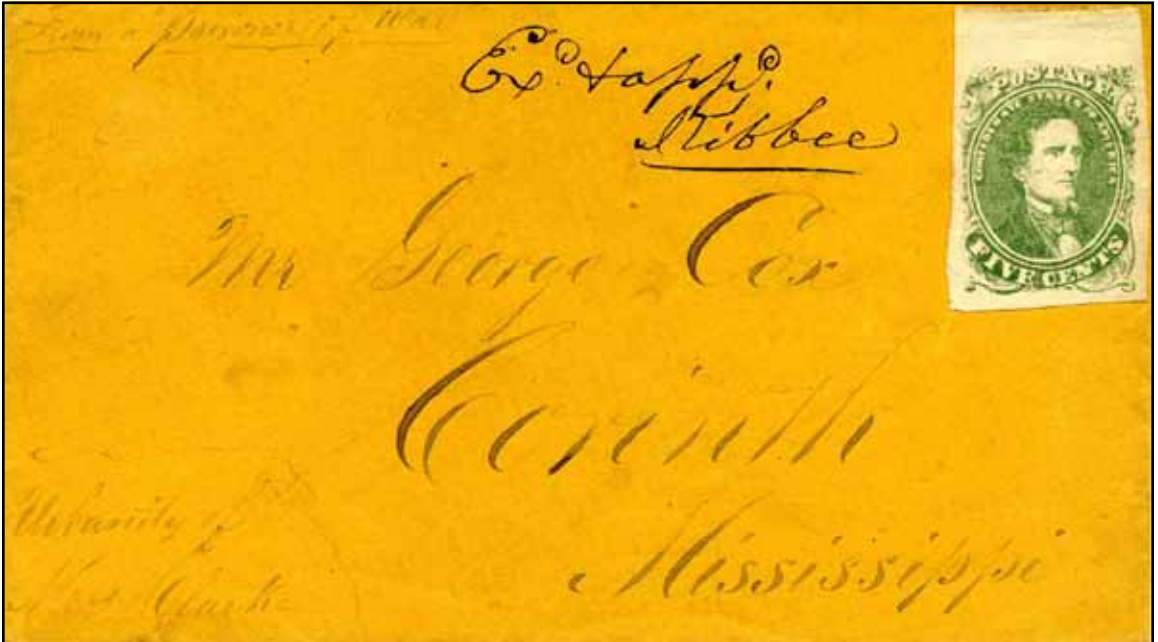 From a Prisoner of War
Ex. & app.
Kibbee
POSTAGE
CONFEDERATE STATES OF AMERICA
FIVE CENTS
Mr George Cox
Corinth
Mississippi
Urbanity of
Clark